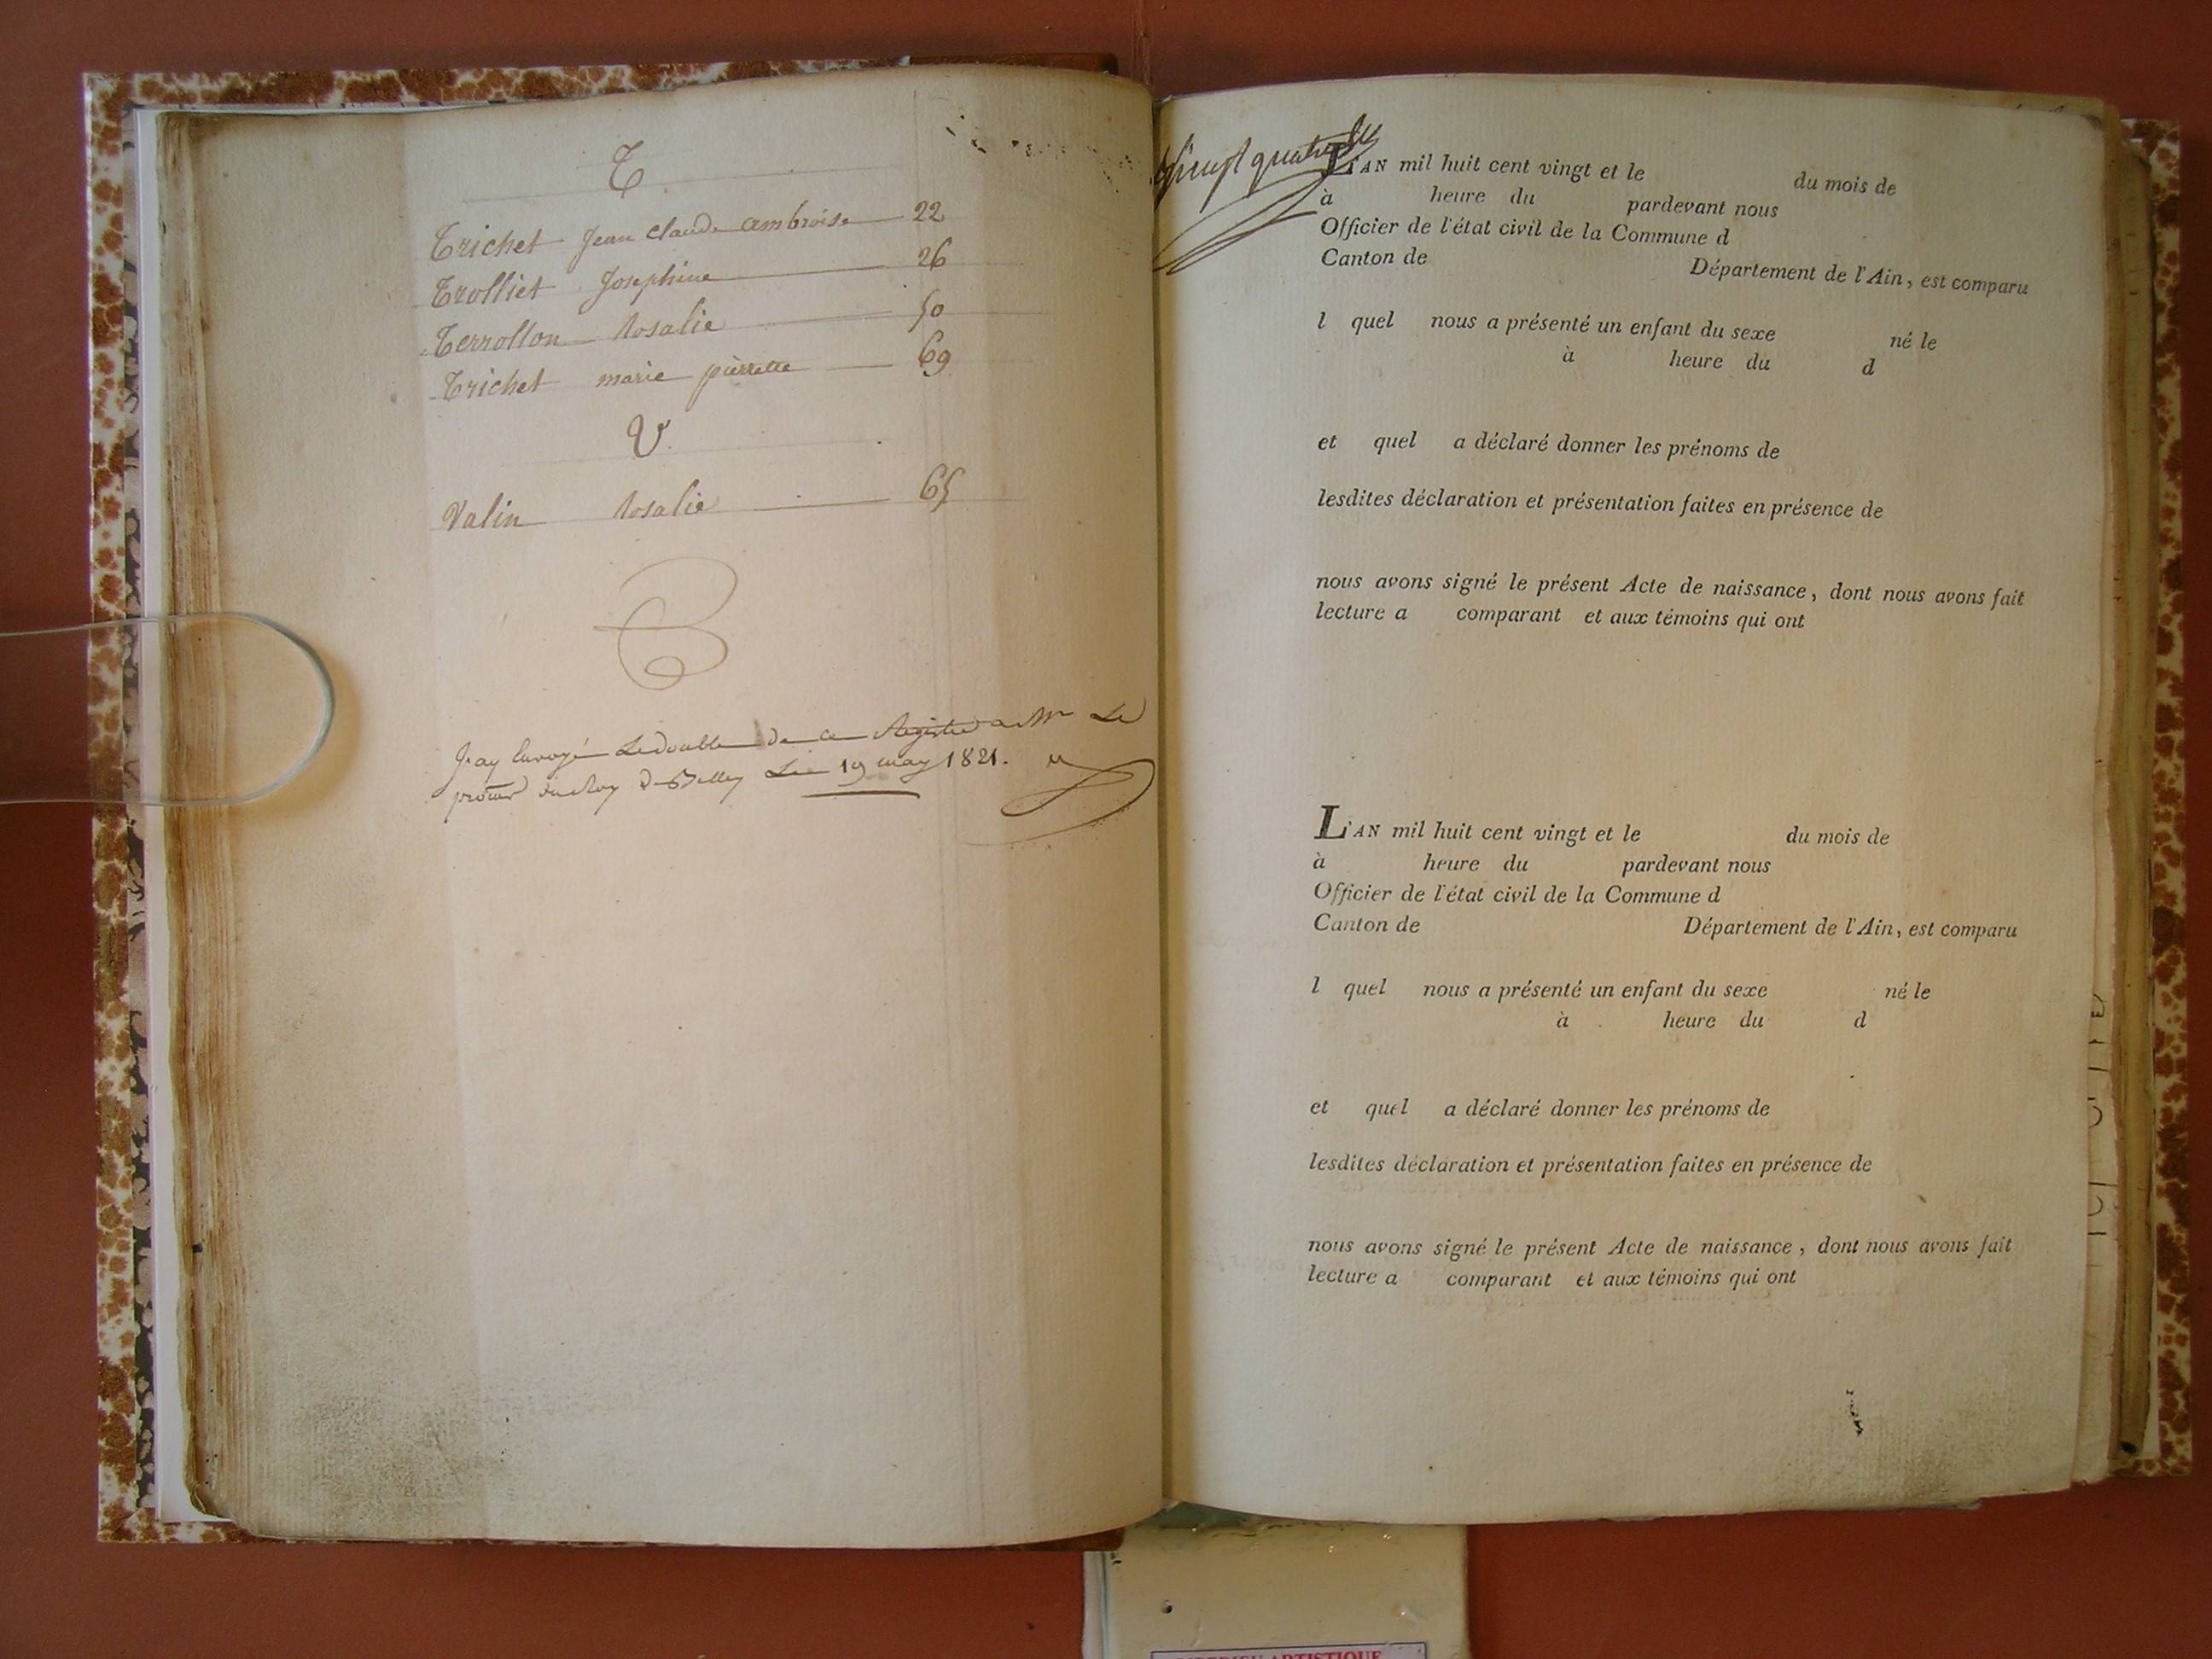 T
Trichet Jean Claude ambroise 22
Trolliet Josephine 26
Terrollon Rosalie 50
Trichet marie pierrette 69
V
Valin Rosalie 65
J'ay Envoyé Le double de ce Registre a Mr Le
procur du Roy de Belley Le 19 may 1821.
Vingt quatre
L'AN mil huit cent vingt et le du mois de
à heure du pardevant nous
Officier de l'état civil de la Commune d
Canton de Département de l'Ain, est comparu
l quel nous a présenté un enfant du sexe né le
à heure du d
et quel a déclaré donner les prénoms de
lesdites déclaration et présentation faites en présence de
nous avons signé le présent Acte de naissance, dont nous avons fait
lecture a comparant et aux témoins qui ont
L'AN mil huit cent vingt et le du mois de
à heure du pardevant nous
Officier de l'état civil de la Commune d
Canton de Département de l'Ain, est comparu
l quel nous a présenté un enfant du sexe né le
à heure du d
et quel a déclaré donner les prénoms de
lesdites déclaration et présentation faites en présence de
nous avons signé le présent Acte de naissance, dont nous avons fait
lecture a comparant et aux témoins qui ont
ARTISTIQUE